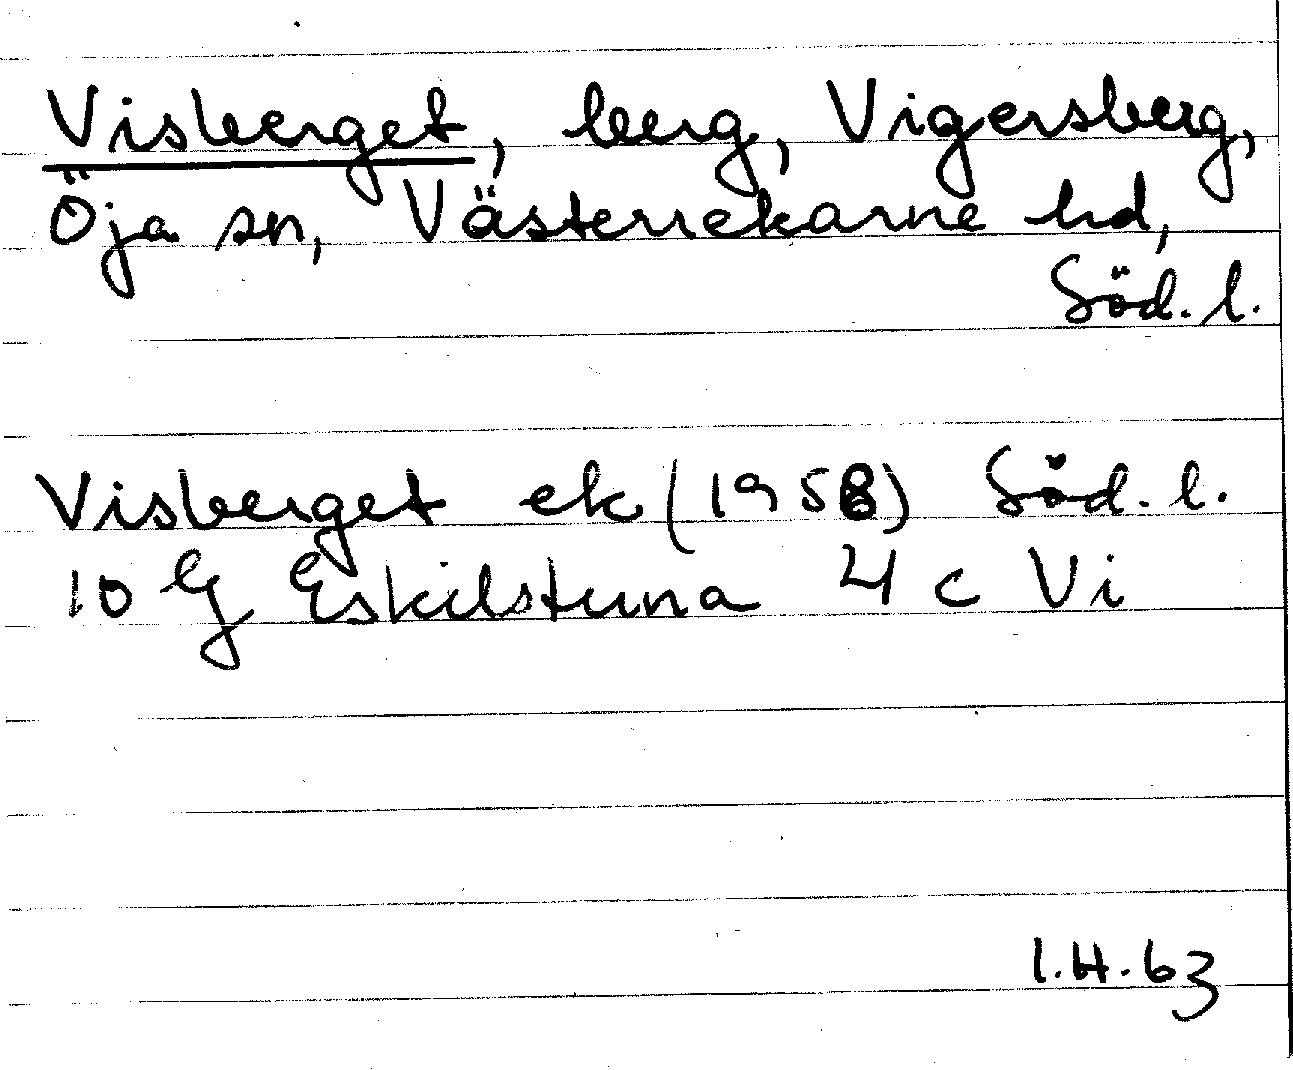 Visberget, berg, Vigersberg,
Öja sn, Västerrekarne hd,
Söd. l.
Visberget ek (1958) Söd. l.
10 G Eskilstuna 4 c Vi
I.H. 63